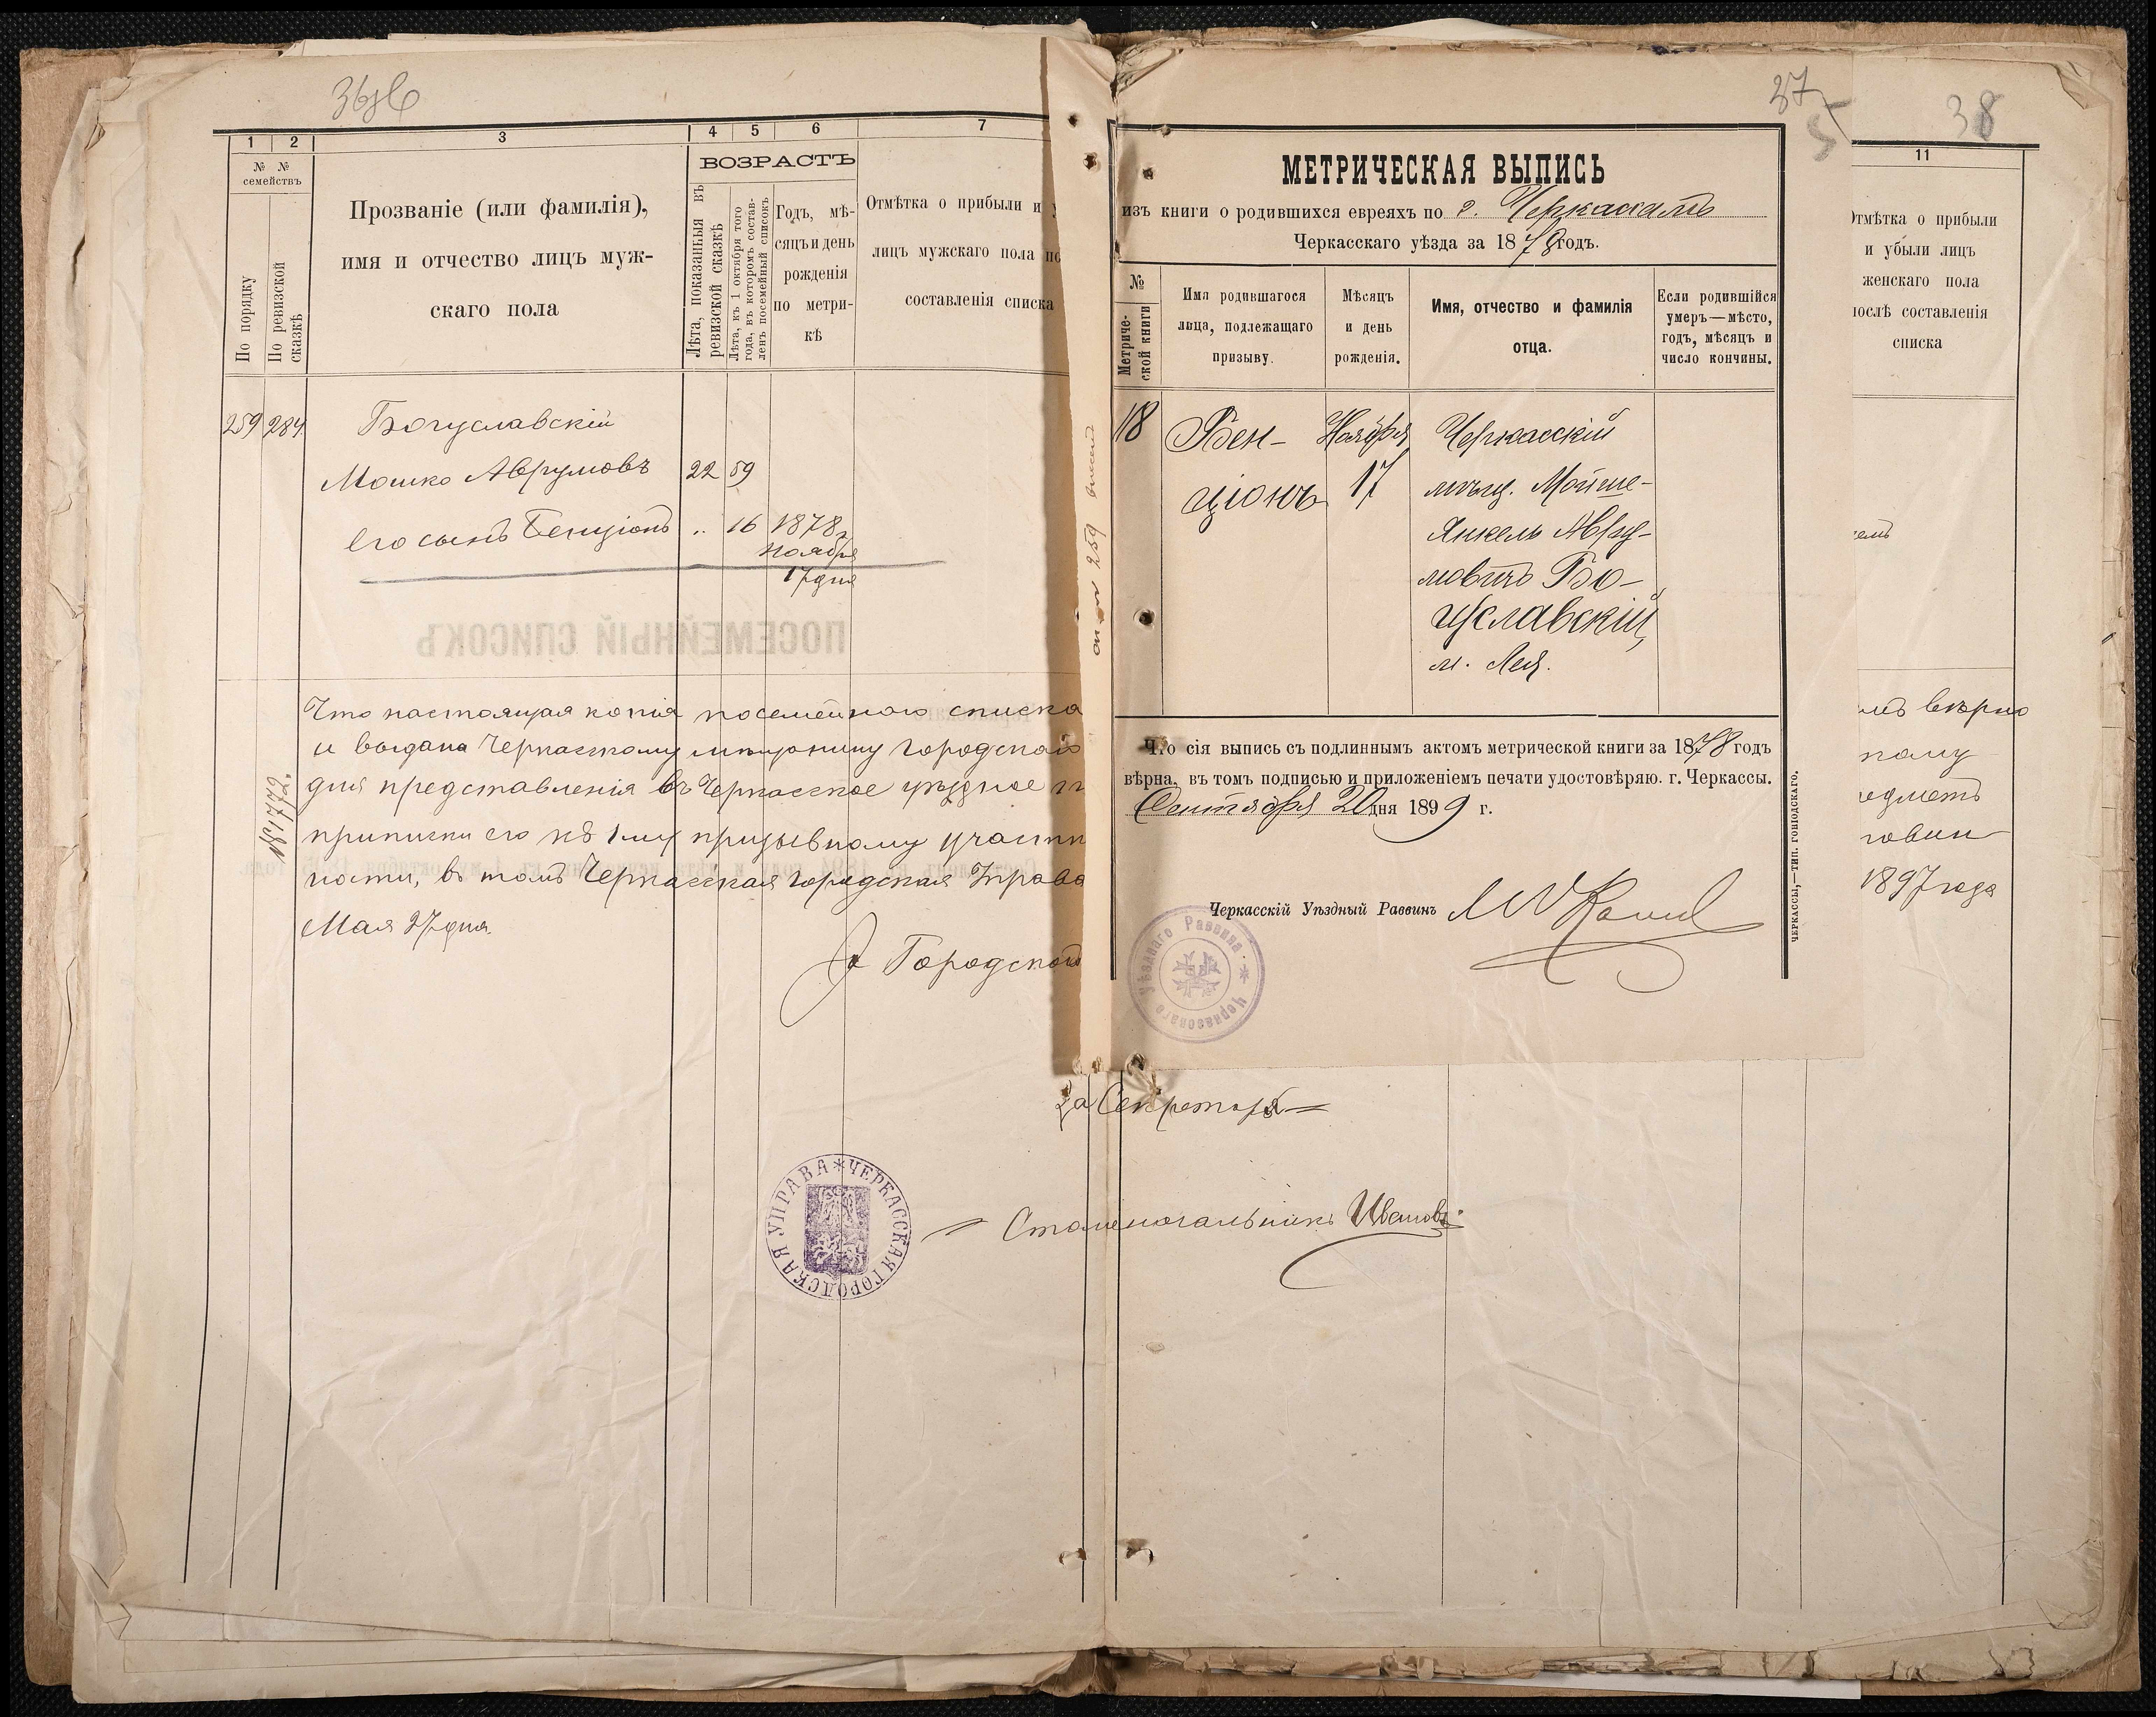 1 2 3 4 5 6 7
№ № семействъ
По порядку
По ревизской сказкѣ
Прозваніе (или фамилія),
имя и отчество лицъ муж-
скаго пола
ВОЗРАСТЪ
Лѣта, показанныя въ
ревизской сказкѣ
Лѣта, къ 1 октября того
года, въ которомъ состав-
ленъ посемейный списокъ
Годъ, мѣ-
сяцъ и день
рожденія
по метри-
кѣ
Отмѣтка о прибыли и у
лицъ мужскаго пола по
составленія списка
259 284 Богуславскій
Мошко Аврумовъ 22 59
его сынъ Бенціонъ .. 16 1878 г
ноября
17 дня
ПОСЕМЕЙНЫЙ СПИСОКЪ
Что настоящая копія посемейнаго списка
и выдана Черкасскому мѣщанину Городской
для представленія въ Черкасское уѣздное
приписки его къ 1му призывному участк
ности, въ томъ Черкасская Городская Управа
Мая 27 дня.
Городского
За Секретаря
Столоначальникъ Ивановъ
ЧЕРКАССКАЯ ГОРОДСКАЯ УПРАВА
259
37
МЕТРИЧЕСКАЯ ВЫПИСЬ
изъ книги о родившихся евреяхъ по г. Черкассамъ
Черкасскаго уѣзда за 1878 годъ.
№
Метриче-
ской книги
Имя родившагося
лица, подлежащаго
призыву.
Мѣсяцъ
и день
рожденія.
Имя, отчество и фамилія
отца.
Если родившійся
умеръ—мѣсто,
годъ, мѣсяцъ и
число кончины.
118 Бен- Ноября Черкасскій
ціонъ 17 мѣщ. Мойше-
Янкель Авру-
мовичъ Бо-
гуславскій,
м. Лея.
Что сія выпись съ подлиннымъ актомъ метрической книги за 1878 годъ
вѣрна, въ томъ подписью и приложеніемъ печати удостовѣряю. г. Черкассы.
Сентября 20 дня 1899 г.
Черкасскій Уѣздный Раввинъ
Черкасскаго Уѣзднаго Раввина
ЧЕРКАССЫ,—ТИП. ГОРОДСКАГО.
38
11
Отмѣтка о прибыли
и убыли лицъ
женскаго пола
послѣ составленія
списка
вѣрно
1897 года